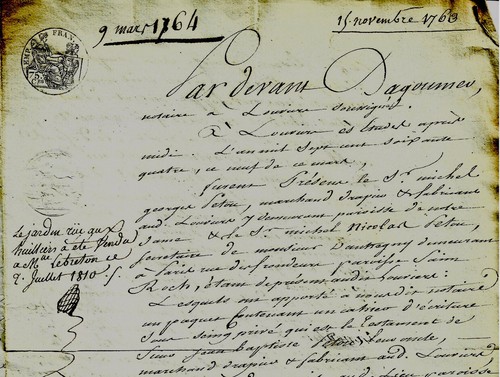 9 mars 1764
15 novembre 1763
75
Par devant Dagoumer,
notaire à Louviers soussigné.
à Louviers ès Etudes après
midi. L'an mil sept cens soixante
quatre, ce neuf de ce mars,
furent Présens le Sr. michel
georges Petou, marchand drapier & fabricant
aud. Louviers y demeurant paroisse de notre
Dame & le Sr. michel Nicolas Petou,
secretaire de monsieur demeurant
à Paris rue des frondeurs paroisse Saint
Roch, étant de présent aud. Louviers:
Lesquels ont apporté à nous dit notaire
un paquet contenant un cahier d'écriture
sous seing privé qui est le testament de
Jean Baptiste Petou leur oncle,
marchand drapier & fabricant aud. Louviers
Le jardin rüe aux
huilliers à été vendu
a Mme Lebreton ce
9. Juillet 1810